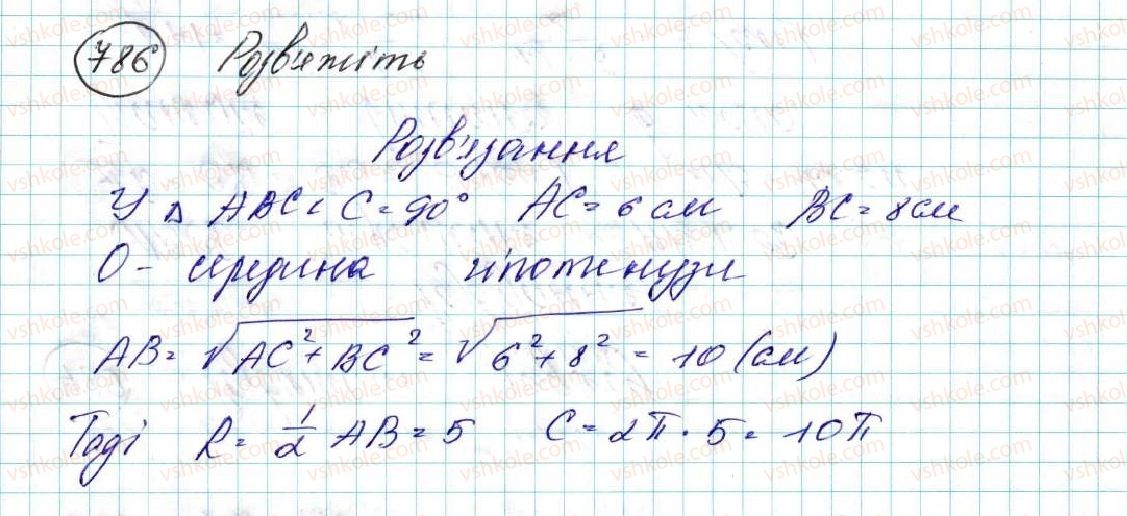 786 Розв'яжіть
Розв'язання
У Δ ABC ∠ C = 90° AC = 6 см BC = 8 см
O - середина гіпотенузи
AB = √AC² + BC² = √6² + 8² = 10 (см)
Тоді R = 1/2 AB = 5 C = 2π · 5 = 10π